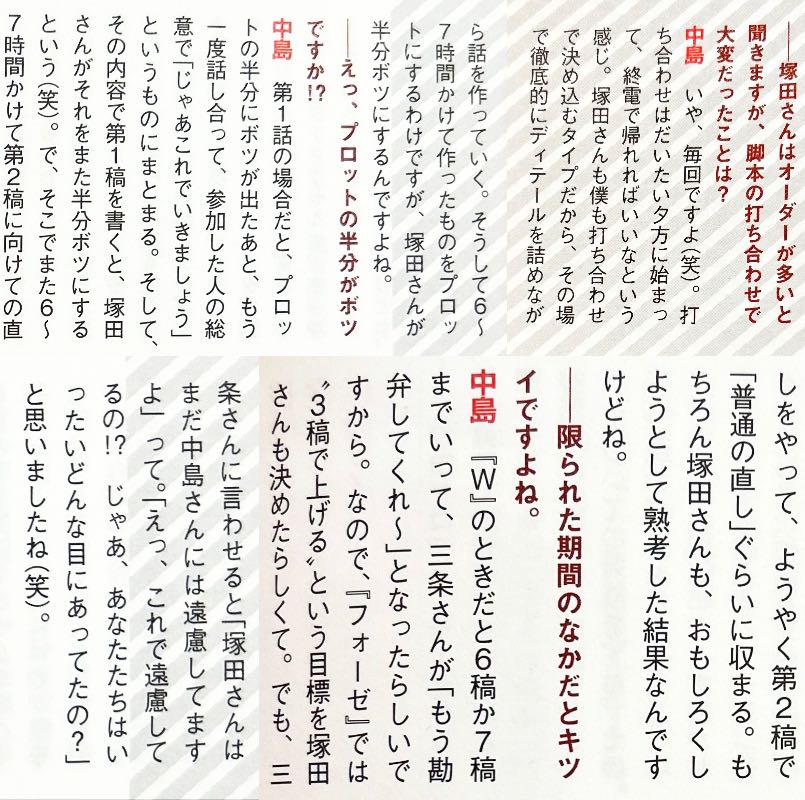 ――塚田さんはオーダーが多いと
聞きますが、脚本の打ち合わせで
大変だったことは？
中島　いや、毎回ですよ（笑）。打
ち合わせはだいたい夕方に始まっ
て、終電で帰れればいいなという
感じ。塚田さんも僕も打ち合わせ
で決め込むタイプだから、その場
で徹底的にディテールを詰めなが
ら話を作っていく。そうして6〜
7時間かけて作ったものをプロッ
トにするわけですが、塚田さんが
半分ボツにするんですよね。
――えっ、プロットの半分がボツ
ですか!?
中島　第1話の場合だと、プロッ
トの半分にボツが出たあと、もう
一度話し合って、参加した人の総
意で「じゃあこれでいきましょう」
というものにまとまる。そして、
その内容で第1稿を書くと、塚田
さんがそれをまた半分ボツにする
という（笑）。で、そこでまた6〜
7時間かけて第2稿に向けての直
しをやって、ようやく第2稿で
「普通の直し」ぐらいに収まる。も
ちろん塚田さんも、おもしろくし
ようとして熟考した結果なんです
けどね。
――限られた期間のなかだとキツ
イですよね。
中島　『W』のときだと6稿か7稿
までいって、三条さんが「もう勘
弁してくれ〜」となったらしいで
すから。なので、『フォーゼ』では
〝3稿で上げる〟という目標を塚田
さんも決めたらしくて。でも、三
条さんに言わせると「塚田さんは
まだ中島さんには遠慮してます
よ」って。「えっ、これで遠慮して
るの!?　じゃあ、あなたたちはい
ったいどんな目にあってたの？」
と思いましたね（笑）。